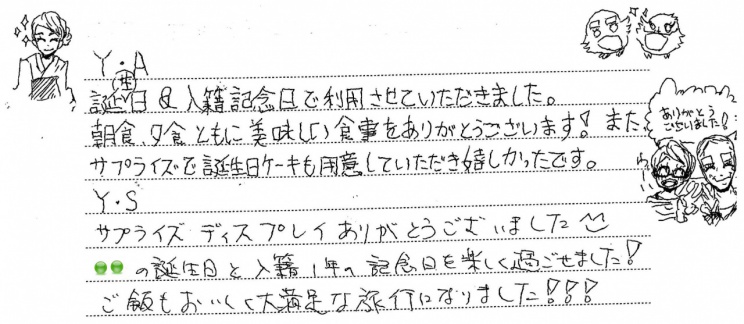 Y・A
誕生日&入籍記念日で利用させていただきました。
朝食、夕食ともに美味しい食事をありがとうございます！また、
サプライズで誕生日ケーキも用意していただき嬉しかったです。
ありがとう
ございました！
Y・S
サプライズディスプレイありがとうございました
の誕生日と入籍1年の記念日を楽しく過ごせました！
ご飯もおいしく大満足な旅行になりました！！！